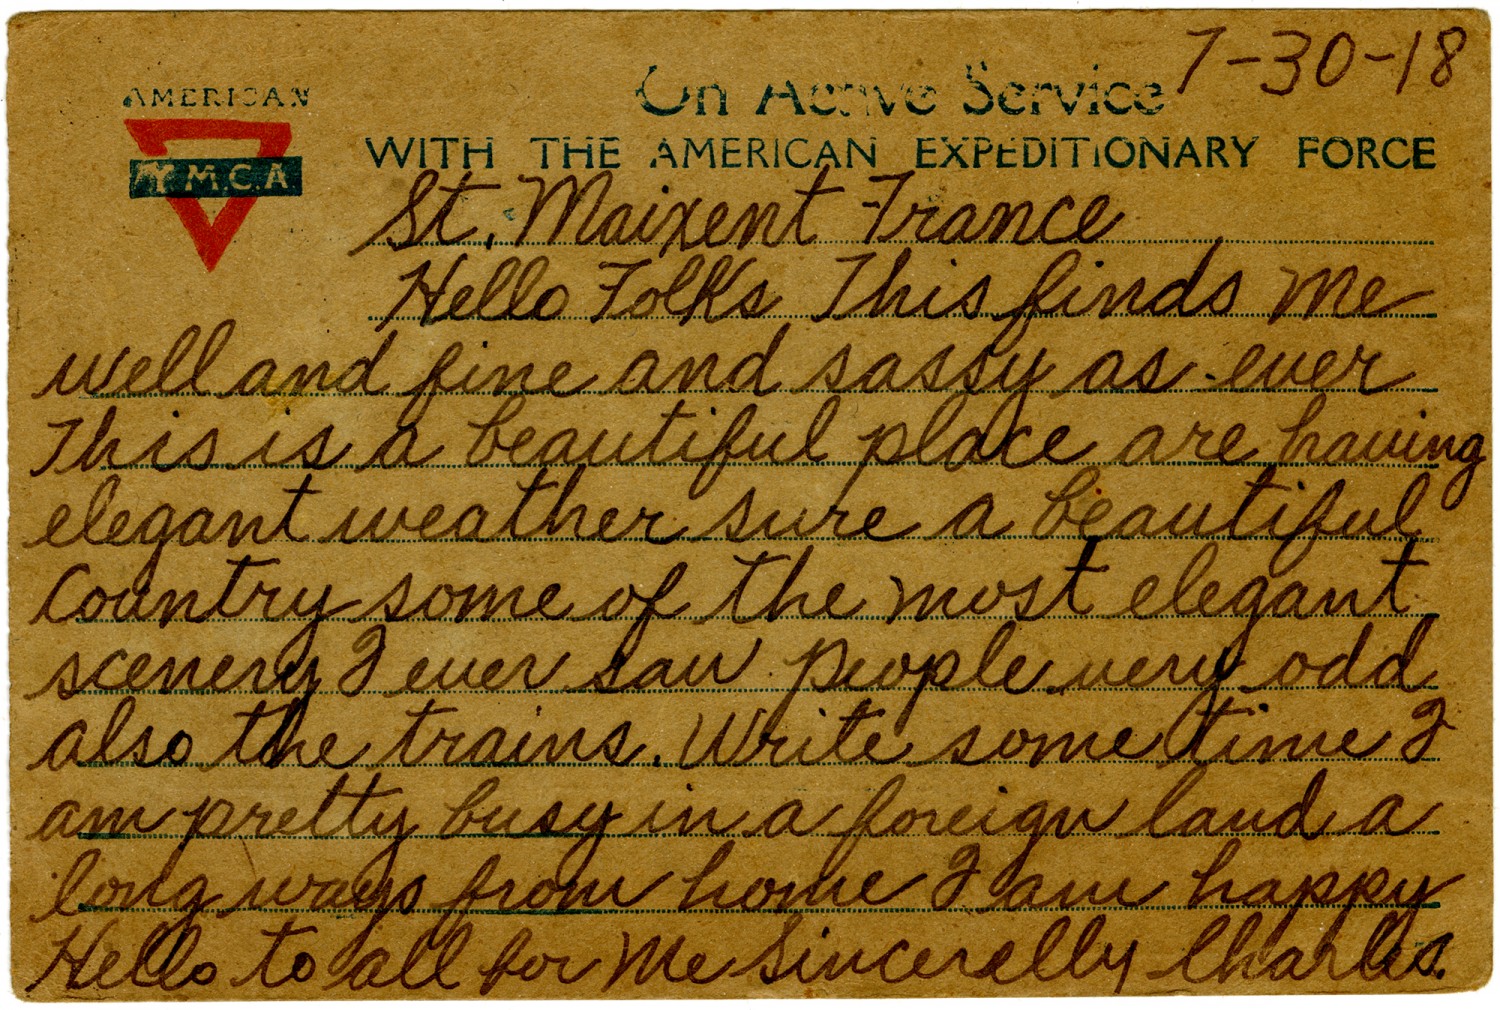 7-30-18
AMERICAN
On Active Service
Y.M.C.A
WITH THE AMERICAN EXPEDITIONARY FORCE
St. Maixent France
Hello Folks This finds me
well and fine and sassy as ever
This is a beautiful place are having
elegant weather sure a beautiful
Country some of the most elegant
scenery I ever saw people very odd
also the trains. Write some time I
am pretty busy in a foreign land a
long ways from home I am happy
Hello to all for me Sincerelly Charles.